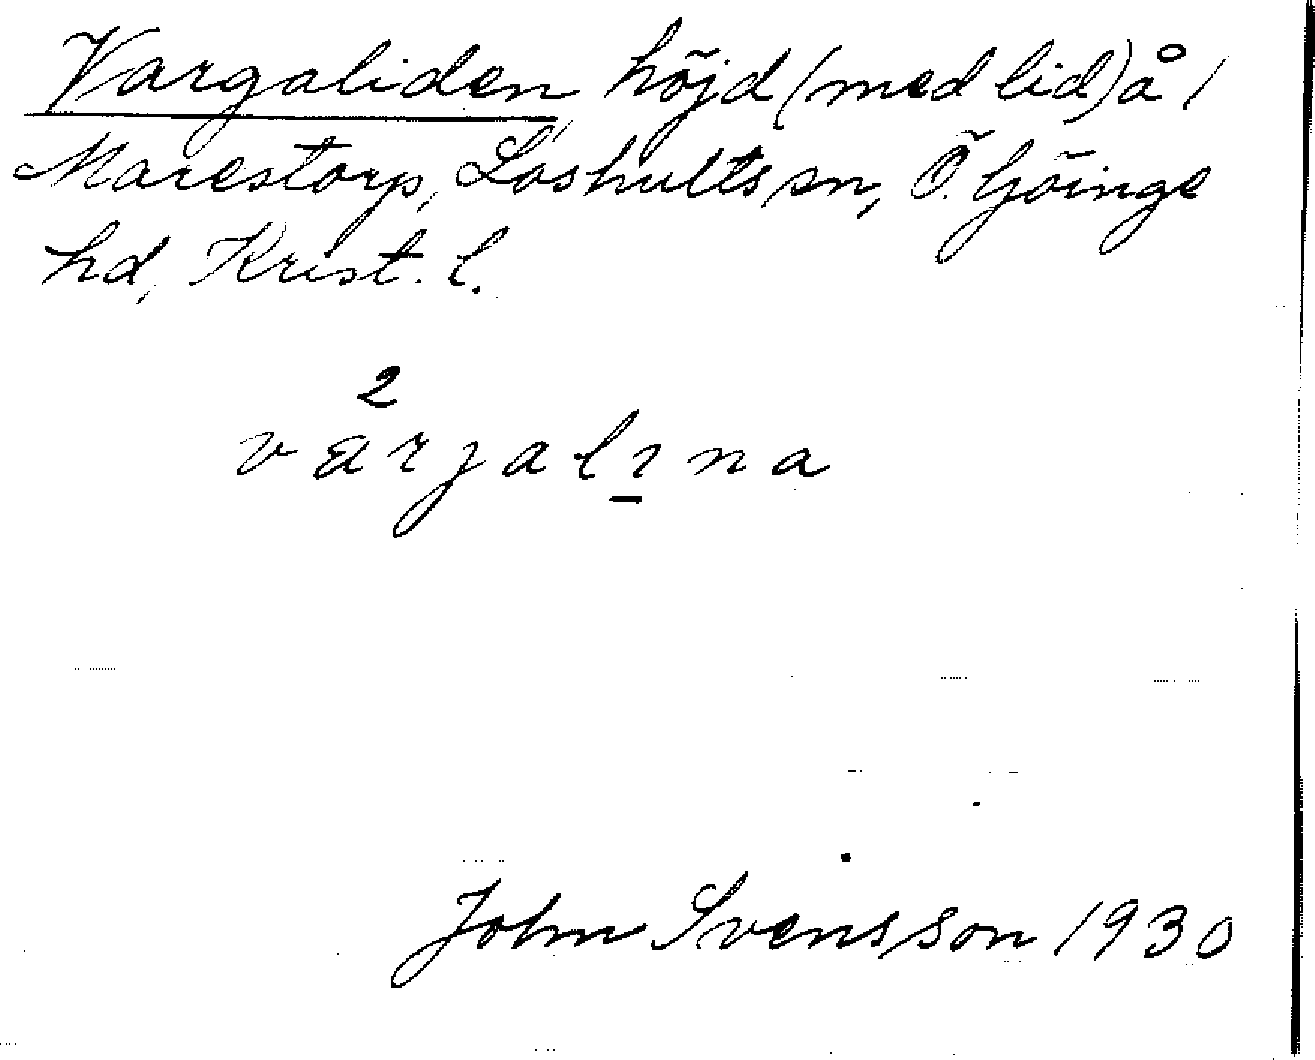 Vargaliden, höjd (med lid) å /
Marestorp, Loshults sn, Ö. Göinge
hd, Krist. l.
2
vårjalına
John Svensson 1930